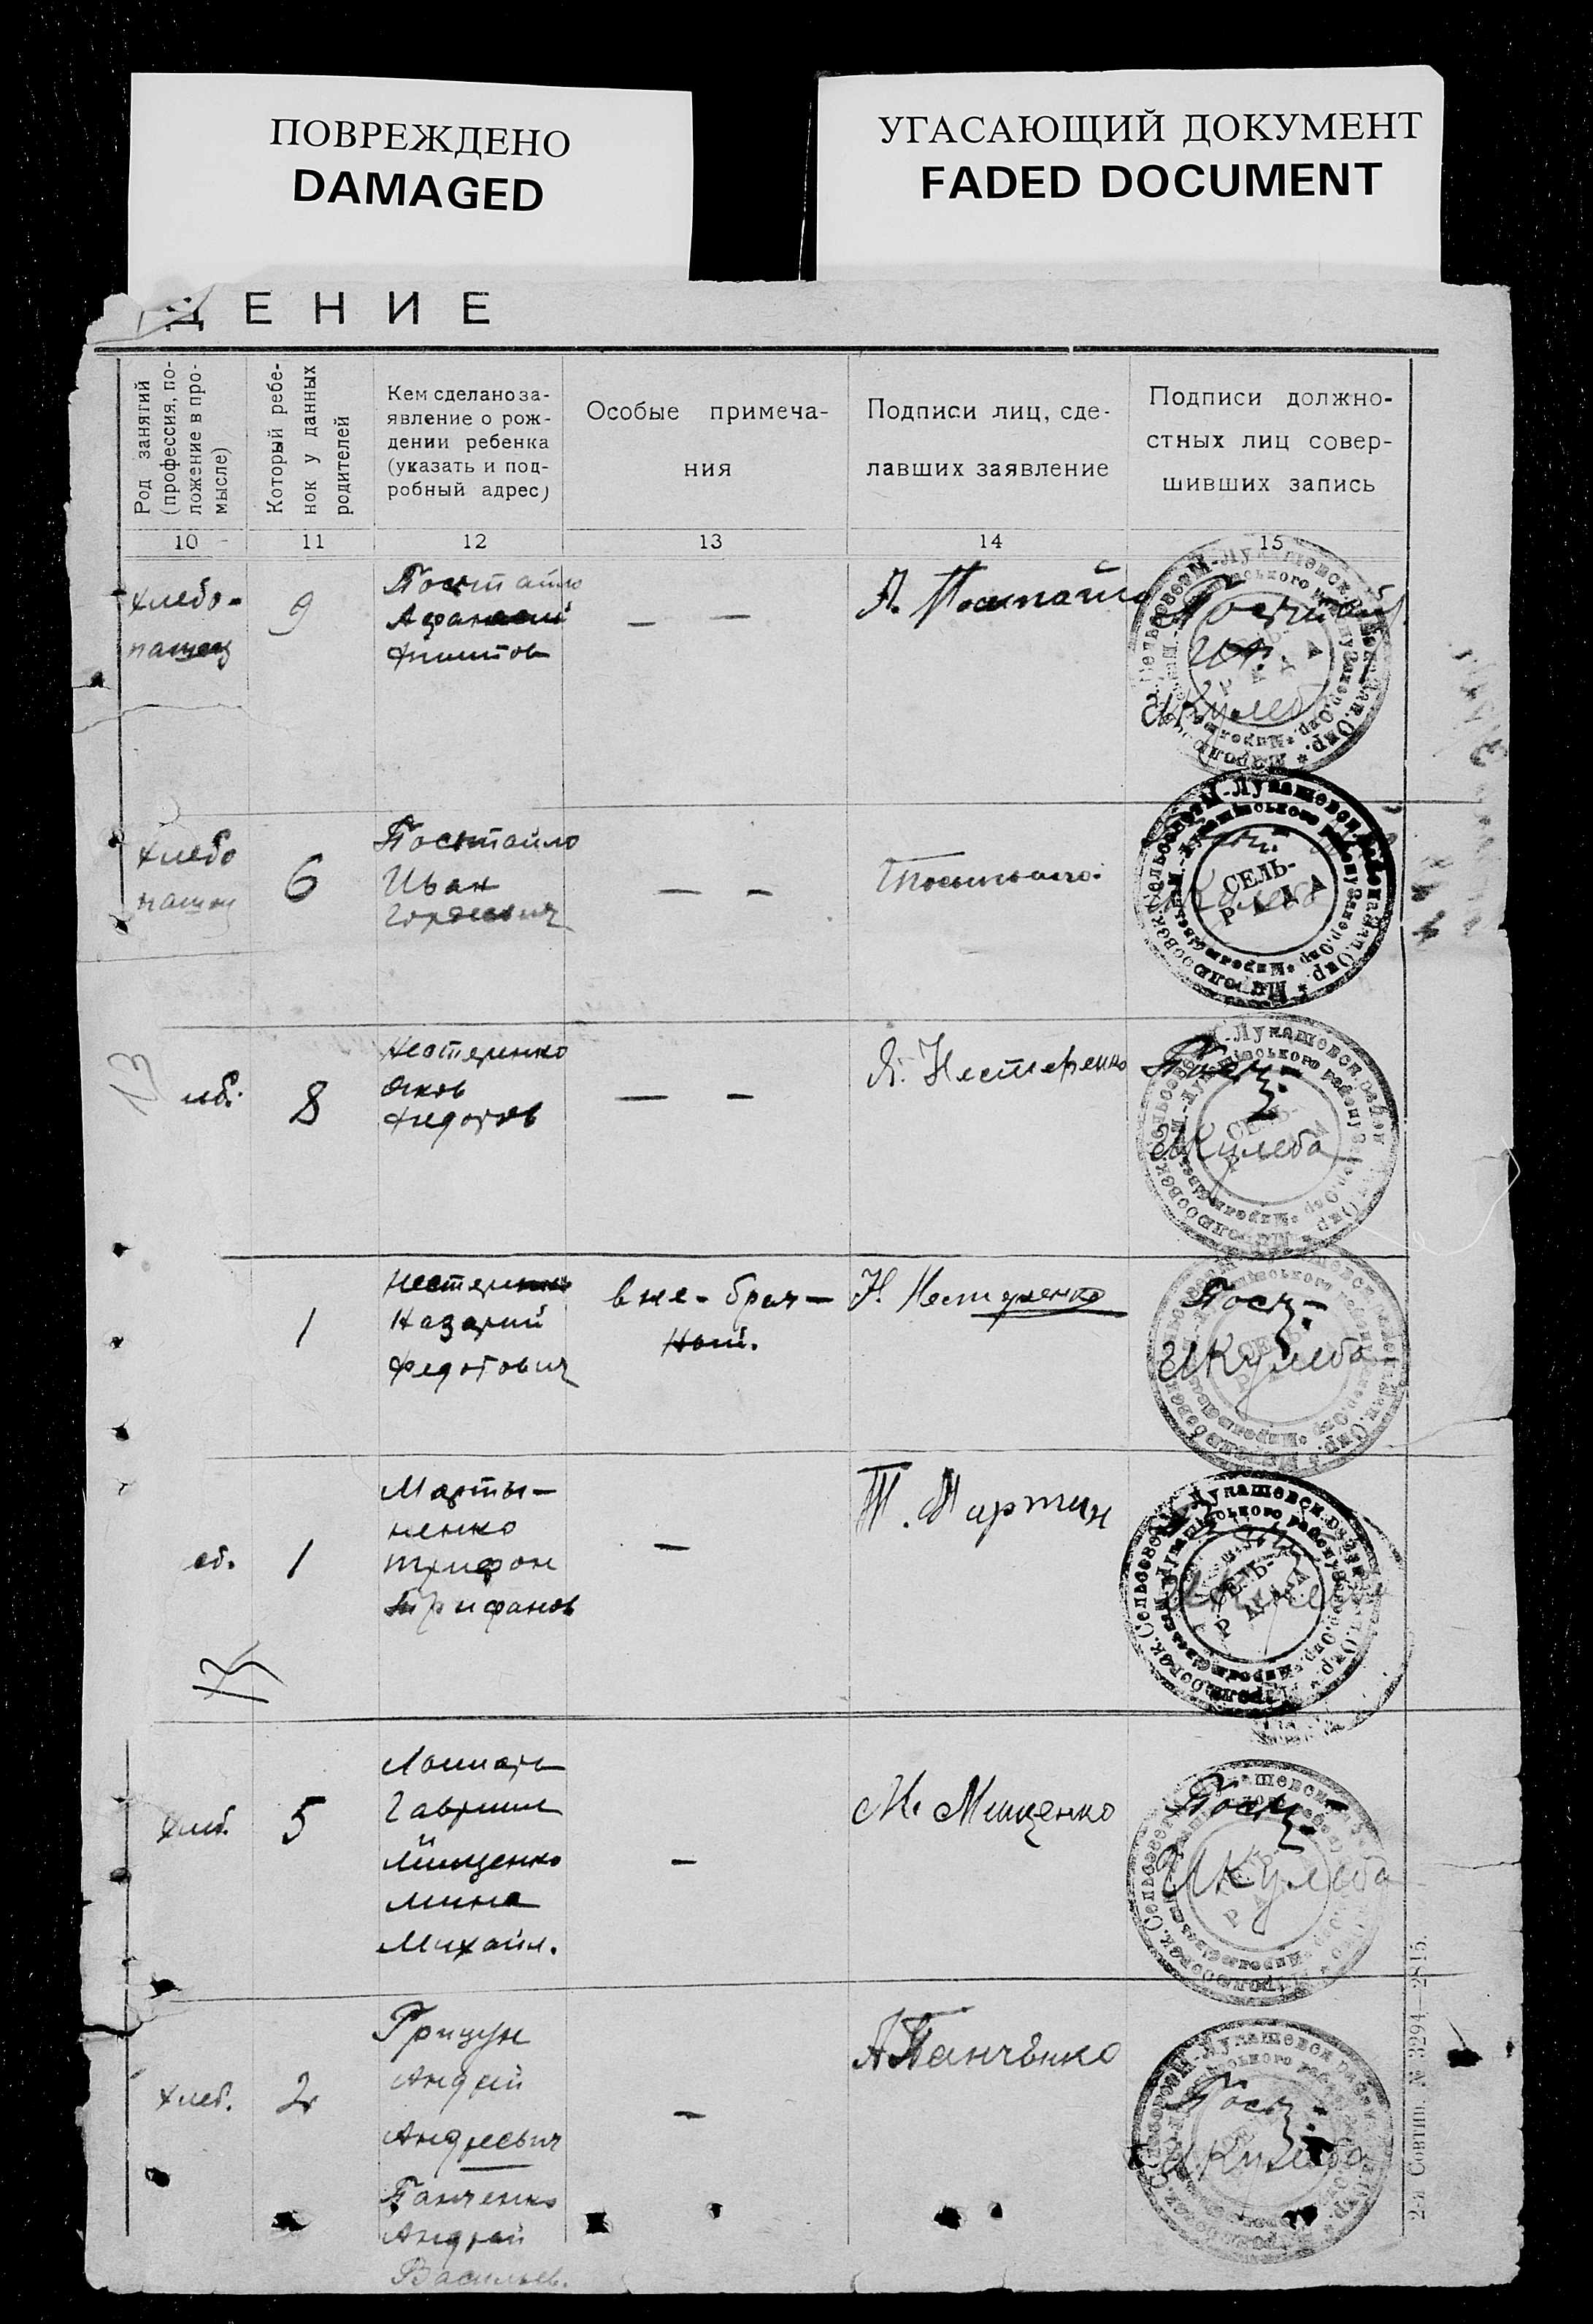 ПОВРЕЖДЕНО
DAMAGED
УГАСАЮЩИЙ ДОКУМЕНТ
FADED DOCUMENT
ДЕНИЕ
Род занятий
(профессия, по-
ложение в про-
мысле)
Который ребе-
нок у данных
родителей
Кем сделано за-
явление о рож-
дении ребенка
(указать и под-
робный адрес)
Особые примеча-
ния
Подписи лиц, сде-
лавших заявление
Подписи должно-
стных лиц совер-
шивших запись
10
11
12
13
14
15
хлебо-
пашец
9
Постайло
Афанасий
— —
А. Постайло
Хлебо
6
Постайло
Иван
Гордеевич
— —
СЕЛЬ-
РАДА
8
Нестеренко
Яков
Федотов
— —
Я. Нестеренко
ИКулеба
1
Нестеренко
Назарий
Федотович
вне-брач-
ный.
Н. Нестеренко
ИКулеба
1
Марты-
ненко
Трифон
Трифонов
—
Т. Мартин
СЕЛЬ-
РАДА
13
хлеб.
5
Лошарь
Гавриил
Мищенко
Мина
Михайл.
—
М. Мищенко
ИКулеба
хлеб.
2
Грицун
Андрей
Андреевич
Панченко
Андрей
Васильев.
—
АПанченко
ИКулеба
2-я Совтип. № 3294—2815.